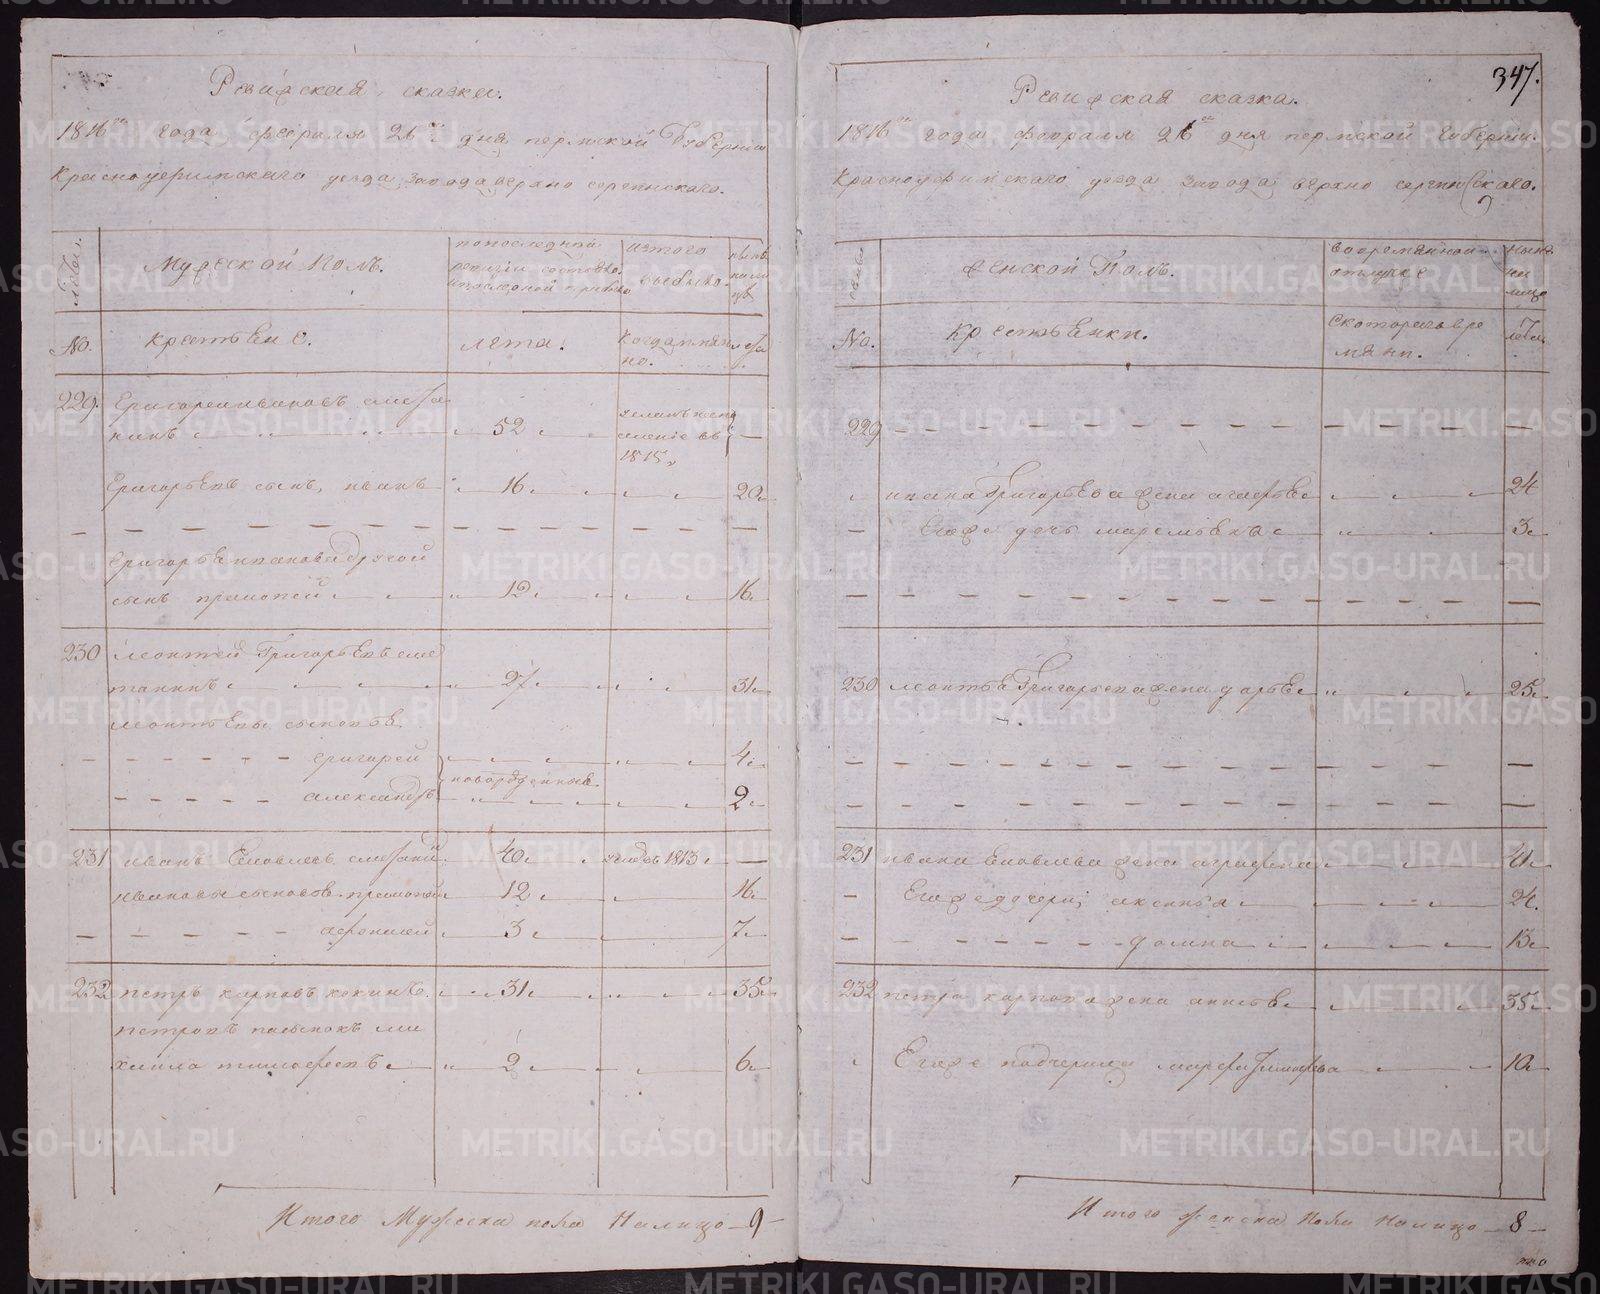 Ревизская сказка.
1816го года февраля 26го дня пермской Губернии
Красноуфимского уезда завода верхно сергинскаго.
семьи.
Мужеской Полъ.
по последней
ревизии состояло
изтого
выбыло
ныне
на ли
цо
No.
крестьяне.
лета.
Когда имян
но.
лета
229.
Григореи ивановъ смета
нинъ 52
1815
—
Григорьевъ сынъ, иванъ 16 20
Григорья иванова другой
сынъ прокопей 12 16
230 леонтей Григорьевъ сме
танинъ 27 31
леонтьевы сыновья
григорей 4
новорожденные
александръ 2
231 иванъ Яковлевъ сметанин 40 1813 —
ивановы сыновья прокопей 12 16
афонасей 3 7
232 петръ карповъ кокинъ 31 35
петровъ пасынокъ ми
хаило тимофеевъ 2 6
Итого Мужеска пола На лицо 9
347.
Ревизская сказка.
1816го года февраля 26го дня пермской губернии
Красноуфимскаго уезда завода верхно сергинскаго.
семьи
Женской Полъ.
во временной
отлучке
ныне
на
лицо
No.
крестьянки.
С которого вре
мяни.
лета.
229 —
ивана Григорьева жена агафья 24
Егоже дочь маремьяна 3
230 леонтья Григорьева жена дарья 25
231 ивана Яковлева жена аграфена 41
Егоже дочери аксинья 24.
домна 13
232 петра карпова жена анисья 35
Егоже падчерица марфа тимофеева 10
Итого женска пола налицо 8